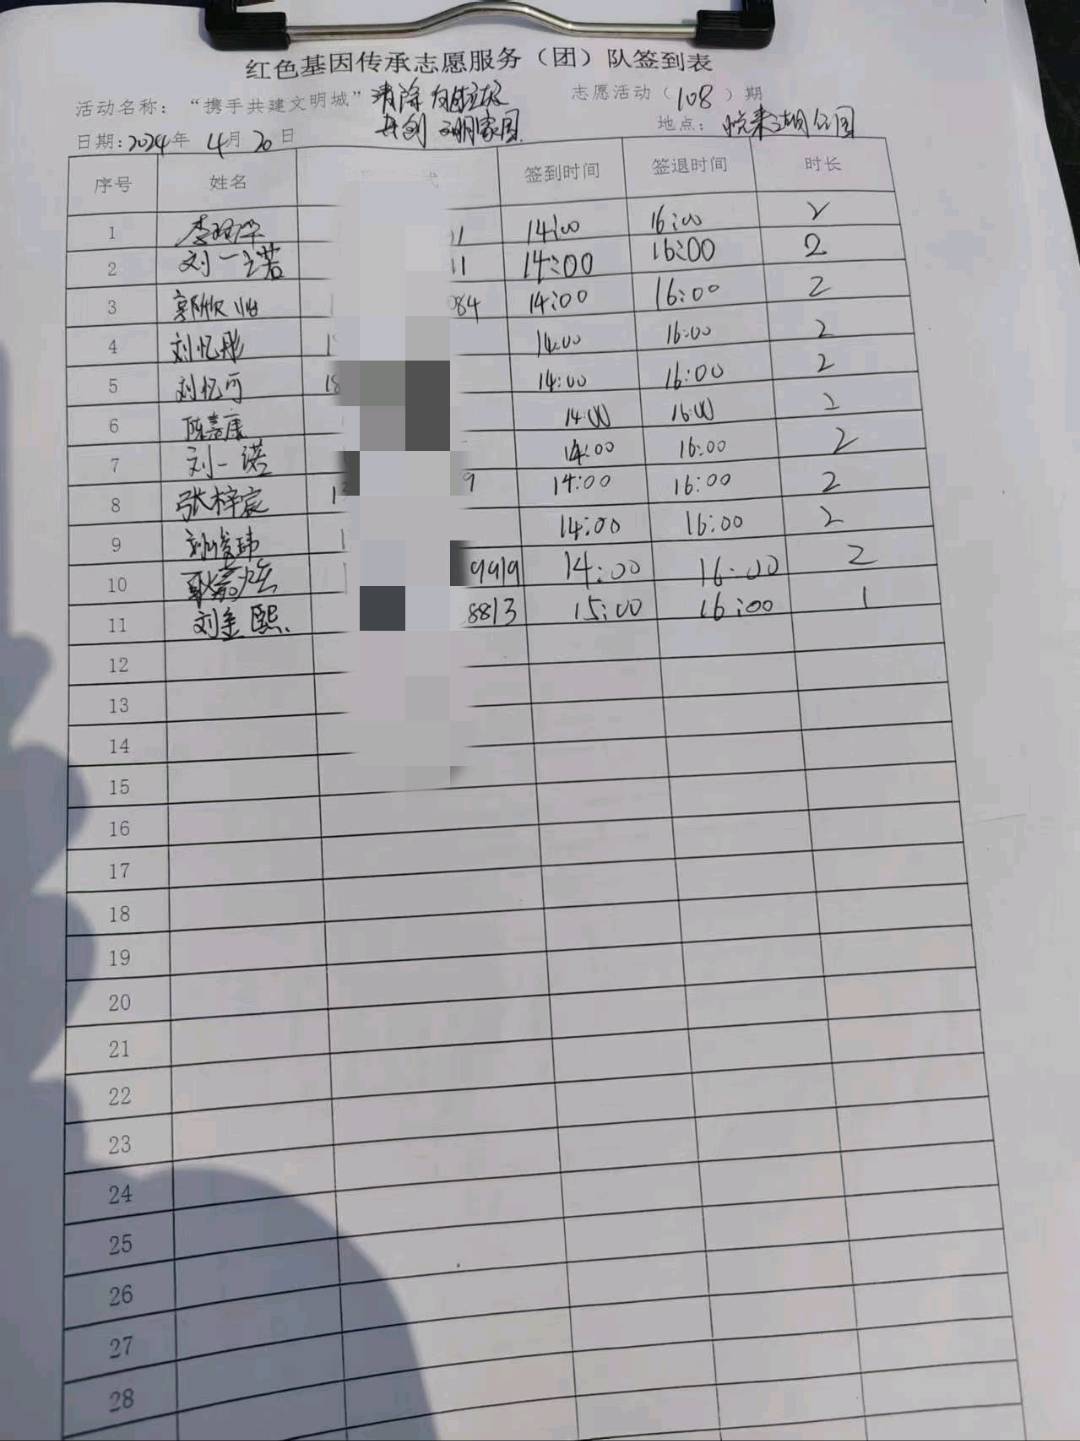 红色基因传承志愿服务（团）队签到表
活动名称：“携手共建文明城”清除白色垃圾 志愿活动（108）期
共创文明家园
日期：2024年 4月 20日 地点：悦来湖公园
序号 姓名 式 签到时间 签退时间 时长
1 李 11 14:00 16:00 2
2 刘一诺 11 14:00 16:00 2
3 郭欣怡 084 14:00 16:00 2
4 刘忆彤 1 14:00 16:00 2
5 刘忆可 18 14:00 16:00 2
6 陈嘉康 14:00 16:00 2
7 刘一诺 14:00 16:00 2
8 张梓宸 1 9 14:00 16:00 2
9 刘俊玮 1 14:00 16:00 2
10 9919 14:00 16:00 2
11 刘金熙 8813 15:00 16:00 1
12
13
14
15
16
17
18
19
20
21
22
23
24
25
26
27
28